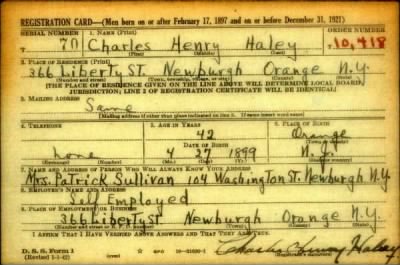 REGISTRATION CARD—(Men born on or after February 17, 1897 and on or before December 31, 1921)
SERIAL NUMBER 1. NAME (Print) ORDER NUMBER
T 70 Charles Henry Haley T 10,418
(First) (Middle) (Last)
2. PLACE OF RESIDENCE (Print)
366 Liberty St Newburgh Orange N.Y.
(Number and street) (Town, township, village, or city) (County) (State)
[THE PLACE OF RESIDENCE GIVEN ON THE LINE ABOVE WILL DETERMINE LOCAL BOARD
JURISDICTION; LINE 2 OF REGISTRATION CERTIFICATE WILL BE IDENTICAL]
3. MAILING ADDRESS
Same
[Mailing address if other than place indicated on line 2. If same insert word same]
4. TELEPHONE 5. AGE IN YEARS 6. PLACE OF BIRTH
42 Orange
DATE OF BIRTH (Town or county)
none 4 27 1899 N.Y.
(Exchange) (Number) (Mo.) (Day) (Yr.) (State or country)
7. NAME AND ADDRESS OF PERSON WHO WILL ALWAYS KNOW YOUR ADDRESS
Mrs. Patrick Sullivan 104 Washington St. Newburgh N.Y.
8. EMPLOYER'S NAME AND ADDRESS
Self Employed
9. PLACE OF EMPLOYMENT OR BUSINESS
366 Liberty St Newburgh Orange N.Y.
(Number and street or R. F. D. number) (Town) (County) (State)
I AFFIRM THAT I HAVE VERIFIED ABOVE ANSWERS AND THAT THEY ARE TRUE.
D. S. S. Form 1
(Revised 1-1-42) (over) GPO 16—21630-1 Charles Henry Haley